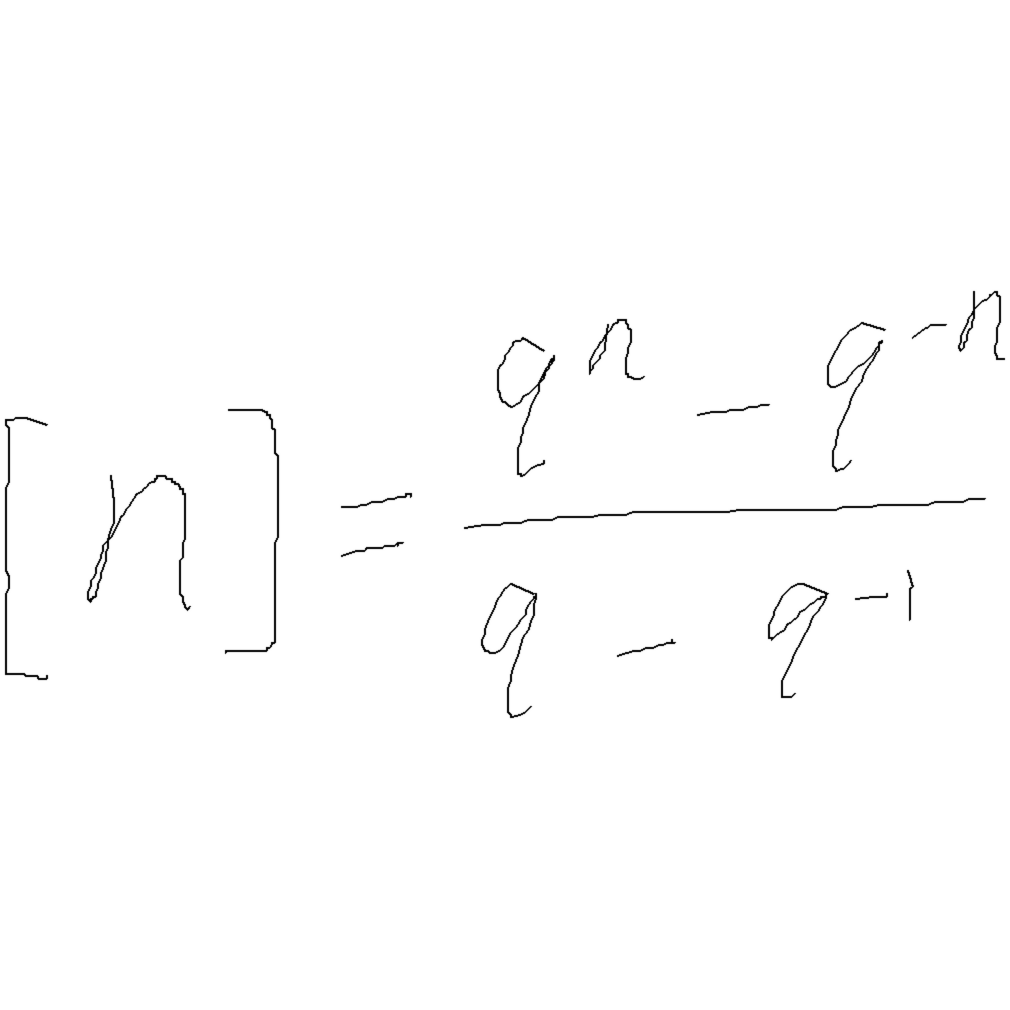 [n] = \frac{q^n - q^{-n}}{q - q^{-1}}